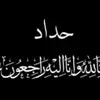 حداد
لله وَإِنَّا إِلَيْهِ رَاجِعُونَ